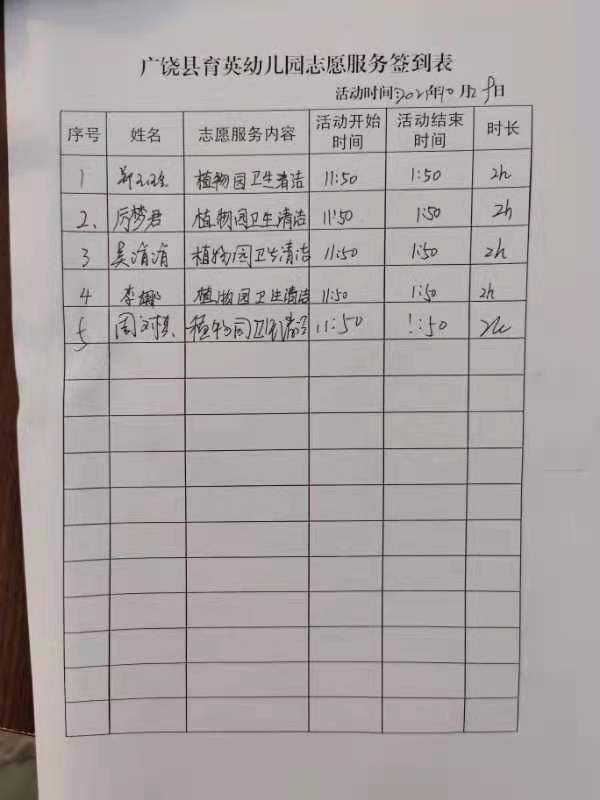 广饶县育英幼儿园志愿服务签到表
活动时间:2021年10月29日
序号 姓名 志愿服务内容 活动开始时间 活动结束时间 时长
1 植物园卫生清洁 11:50 1:50 2h
2、 厉梦君 植物园卫生清洁 11:50 1:50 2h
3 吴清清 植物园卫生清洁 11:50 1:50 2h
4 李娜 植物园卫生清洁 11:50 1:50 2h
5 植物园卫生清洁 11:50 1:50 2h